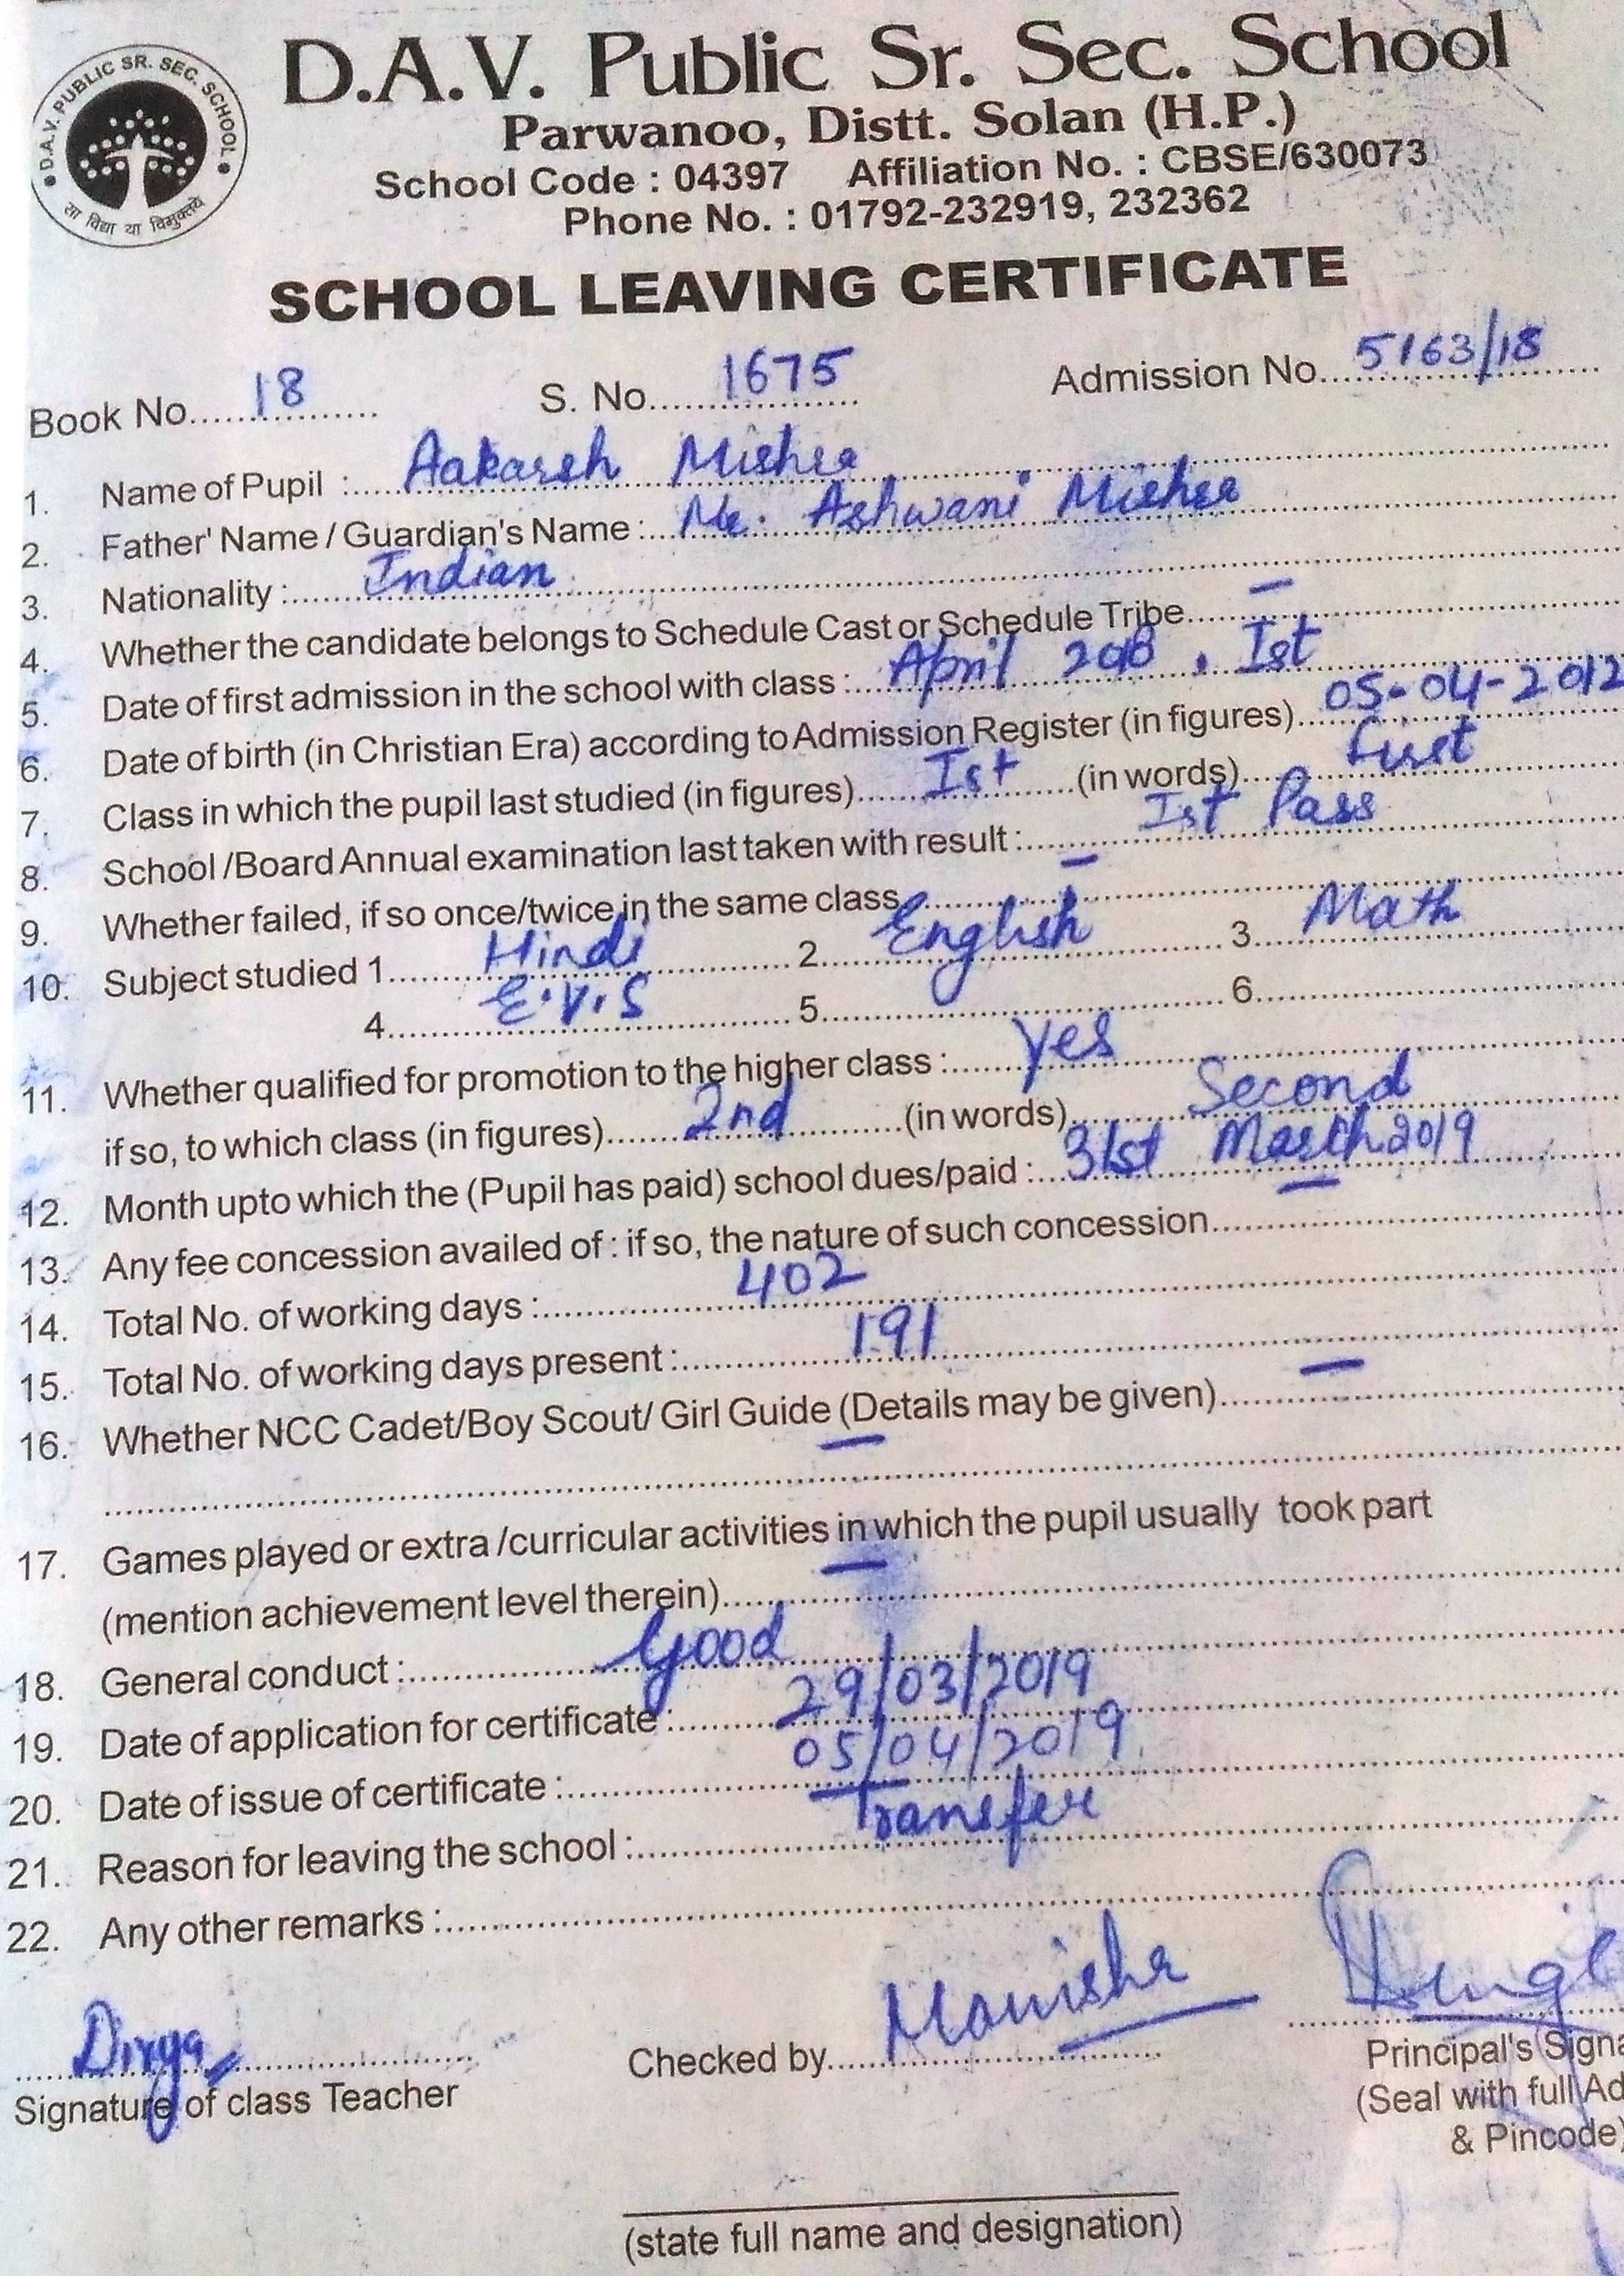 D.A.V. PUBLIC SR. SEC. SCHOOL
सा विद्या या विमुक्तये
D.A.V. Public Sr. Sec. School
Parwanoo, Distt. Solan (H.P.)
School Code : 04397 Affiliation No. : CBSE/630073
Phone No. : 01792-232919, 232362
SCHOOL LEAVING CERTIFICATE
Book No. 18 S. No. 1675 Admission No. 5163/18
1. Name of Pupil : Aakarsh Mishra
2. Father' Name / Guardian's Name : Mr. Ashwani Mishra
3. Nationality : Indian
4. Whether the candidate belongs to Schedule Cast or Schedule Tribe —
5. Date of first admission in the school with class : April 2018, Ist
6. Date of birth (in Christian Era) according to Admission Register (in figures) 05-04-2012
7. Class in which the pupil last studied (in figures) Ist (in words) first
8. School /Board Annual examination last taken with result : Ist Pass
9. Whether failed, if so once/twice in the same class —
10. Subject studied 1. Hindi 2. English 3. Math
4. E.V.S 5. 6.
11. Whether qualified for promotion to the higher class : yes
if so, to which class (in figures) 2nd (in words) Second
12. Month upto which the (Pupil has paid) school dues/paid : 31st March 2019
13. Any fee concession availed of : if so, the nature of such concession —
14. Total No. of working days : 402
15. Total No. of working days present : 191
16. Whether NCC Cadet/Boy Scout/ Girl Guide (Details may be given) —
—
17. Games played or extra /curricular activities in which the pupil usually took part
(mention achievement level therein) —
18. General conduct : Good
19. Date of application for certificate : 29/03/2019
20. Date of issue of certificate : 05/04/2019
21. Reason for leaving the school : Transfer
22. Any other remarks :
Divya
Signature of class Teacher
Checked by Manisha
Principal's Signa
(Seal with full Ad
& Pincode)
(state full name and designation)